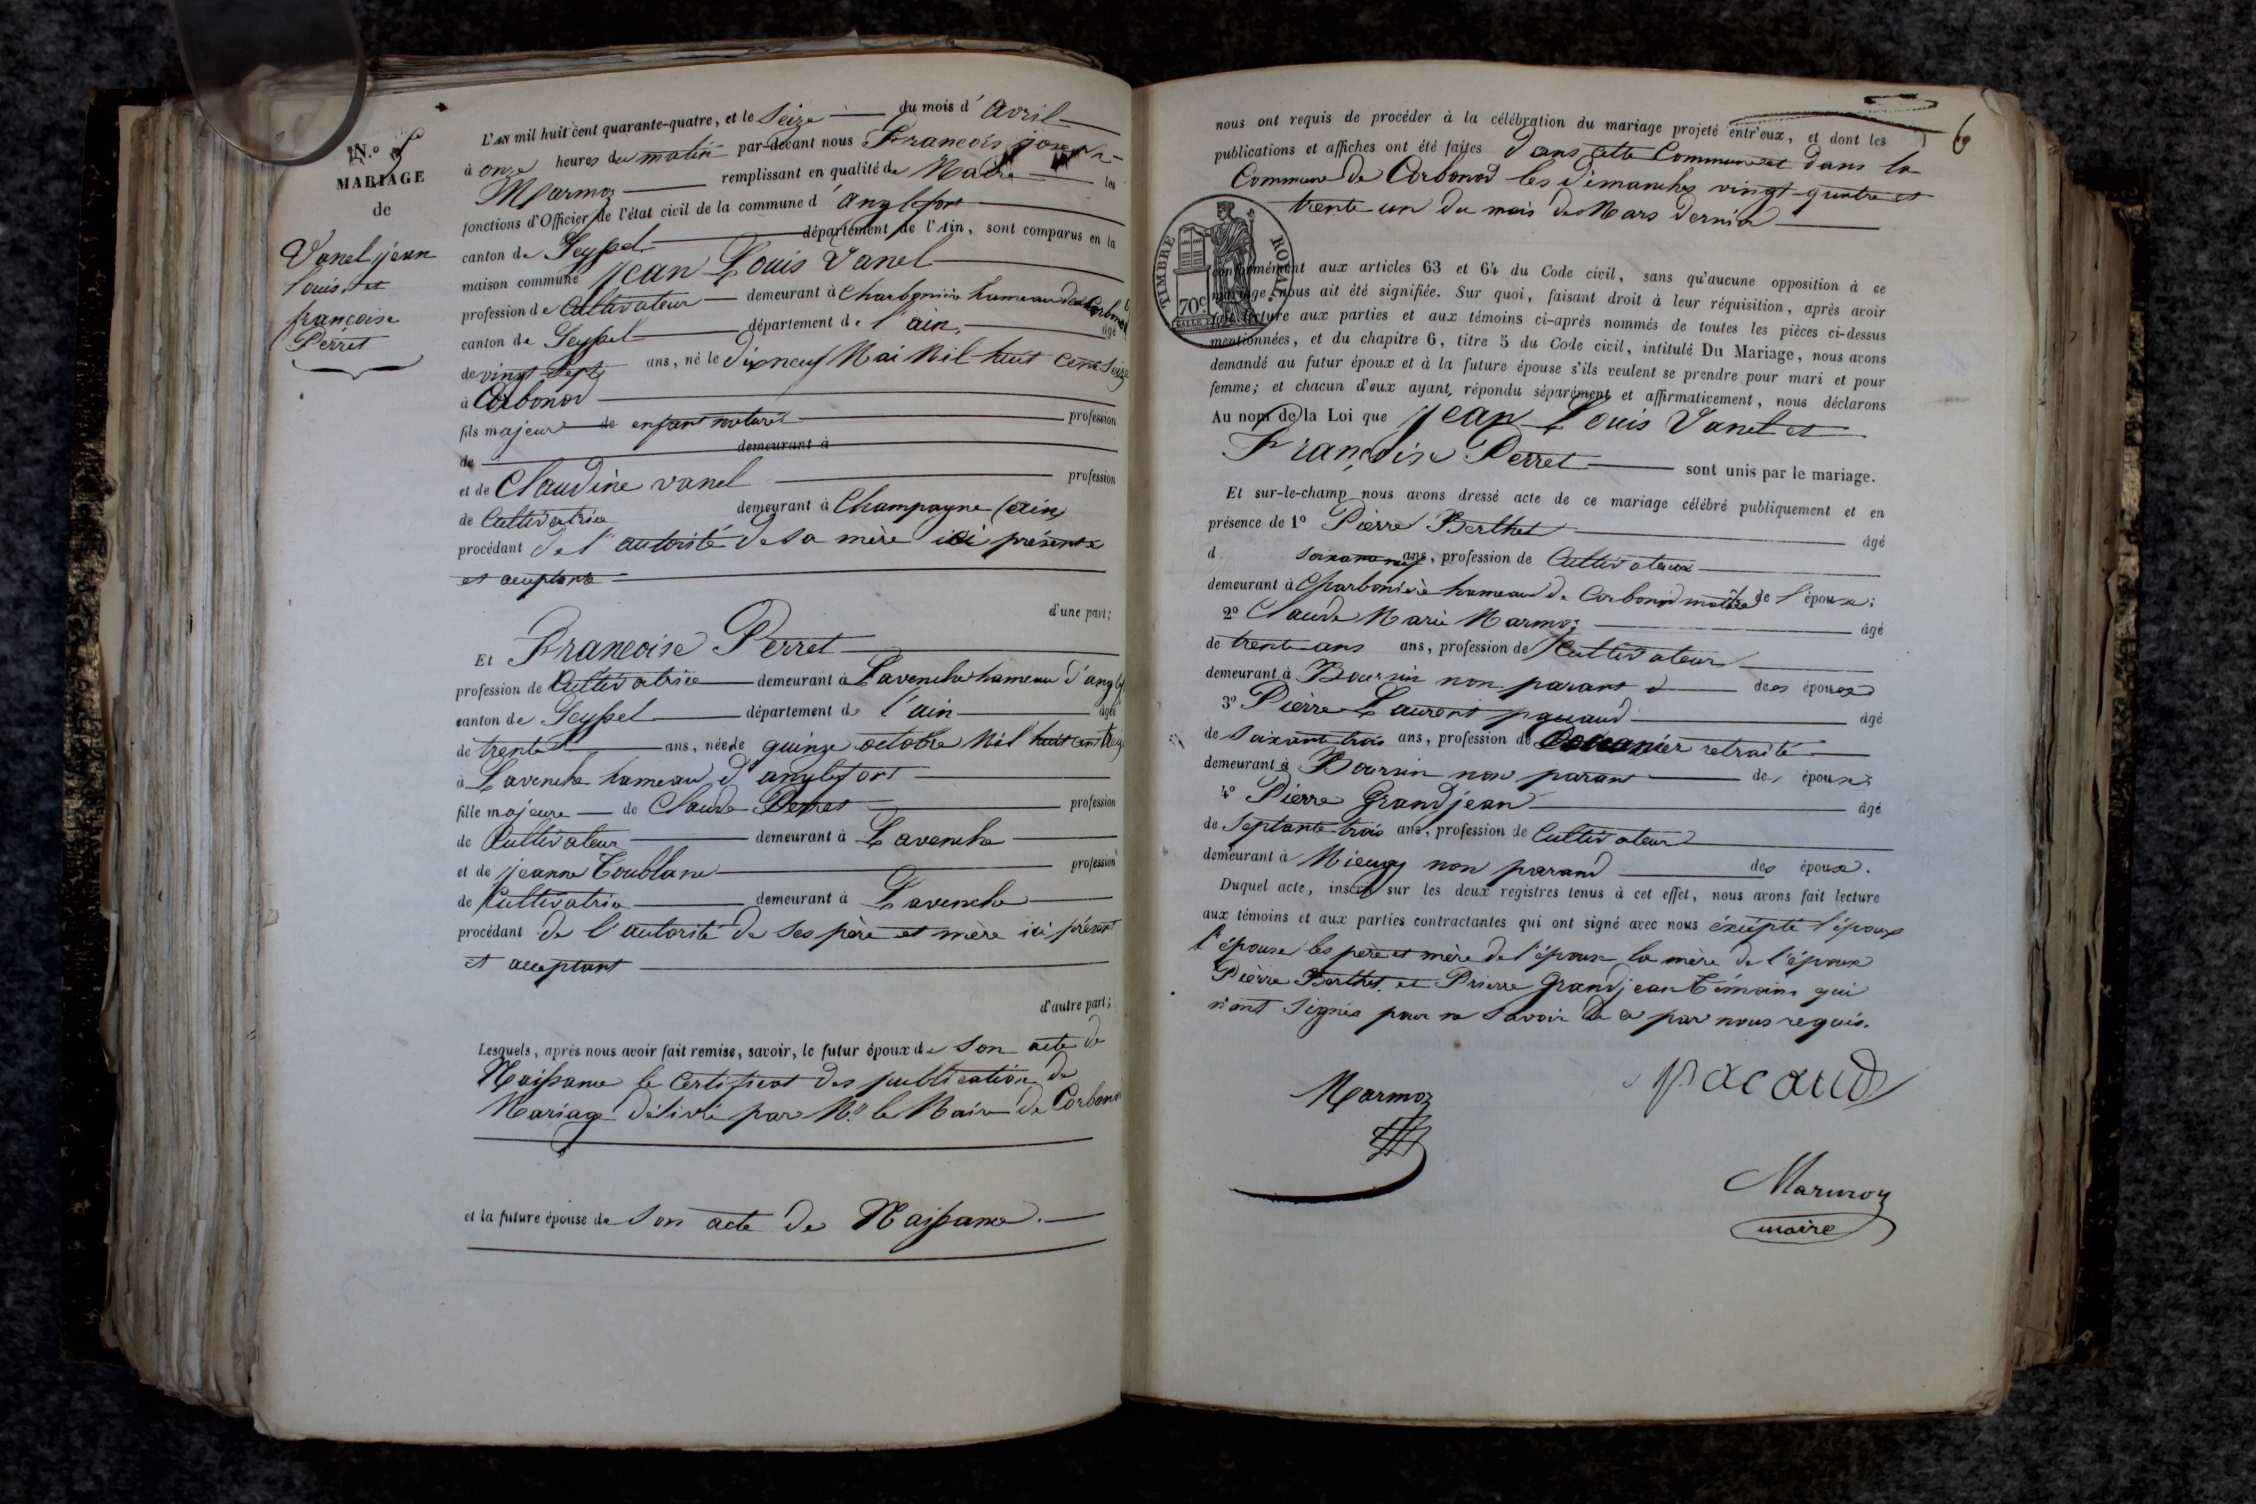 N.o 5
MARIAGE
de
Vanel jean
louis et
françoise
Perret
L'AN mil huit cent quarante-quatre, et le Seize du mois d' avril
à onze heures du matin par-devant nous François joseph
Marmoz remplissant en qualité de Maire les
fonctions d'Officier de l'état civil de la commune d' anglefort
canton de Seyssel département de l'Ain, sont comparus en la
maison commune Jean Louis Vanel
profession de Cultivateur demeurant à Charbonière hameau de Corbonod
canton de Seyssel département de l'ain, âgé
de vingt Sept ans, né le dixneuf Mai Mil huit cent Seize
à Corbonod
fils majeur de enfant naturel profession
de demeurant à
et de Claudine vanel profession
de Cultivatrice demeurant à Champagne (ain)
procédant de l'autorité de Sa mère ici présente
et acceptante
d'une part;
Et Françoise Perret
profession de Cultivatrice demeurant à Lavenche hameau d'anglef
canton de Seyssel département de l'ain âgée
de trente ans, née le quinze octobre Mil huit cent treize
à Lavenche hameau d'anglefort
fille majeure de Claude Perret profession
de Cultivateur demeurant à Lavenche
et de jeanne Toublanc profession
de Cultivatrice demeurant à Lavenche
procédant de l'autorité de Ses père et mère ici présent
et acceptant
d'autre part;
Lesquels, après nous avoir fait remise, savoir, le futur époux de Son acte de
Naissance le Certificat des publication de
Mariage délivré par Mr. le Maire de Corbonod
et la future épouse de Son acte de Naissance.
69
nous ont requis de procéder à la célébration du mariage projeté entr'eux, et dont les
publications et affiches ont été faites dans cette Commune et dans la
Commune de Corbonod les dimanches vingt-quatre et
trente un du mois de Mars dernier
TIMBRE ROYAL
70c
conformément aux articles 63 et 64 du Code civil, sans qu'aucune opposition à ce
mariage nous ait été signifiée. Sur quoi, faisant droit à leur réquisition, après avoir
fait lecture aux parties et aux témoins ci-après nommés de toutes les pièces ci-dessus
mentionnées, et du chapitre 6, titre 5 du Code civil, intitulé Du Mariage, nous avons
demandé au futur époux et à la future épouse s'ils veulent se prendre pour mari et pour
femme; et chacun d'eux ayant répondu séparément et affirmativement, nous déclarons
Au nom de la Loi que Jean Louis Vanel et
Françoise Perret sont unis par le mariage.
Et sur-le-champ nous avons dressé acte de ce mariage célébré publiquement et en
présence de 1o Pièrre Berthet âgé
d ans, profession de Cultivateur
demeurant à Charbonière hameau de Corbonod de l'époux;
2o Claude Marie Marmoz âgé
de trente ans ans, profession de Cultivateur
demeurant à Boursin non parant des époux
3o Pièrre Laurent pacaud âgé
de Soixante trois ans, profession de Douanier retraité
demeurant à Boursin non parant des époux;
4o Pièrre Grandjean âgé
de Septante trois ans, profession de Cultivateur
demeurant à Mieugy non parand des époux.
Duquel acte, inscrit sur les deux registres tenus à cet effet, nous avons fait lecture
aux témoins et aux parties contractantes qui ont signé avec nous éxcépté l'époux
l'épouse les père et mère de l'épouse la mère de l'époux
Pièrre Berthet et Prierre Grandjean témoins qui
n'ont Signés pour ne Savoir de ce par nous requis.
Marmoz
pacaud
Marmoz
maire